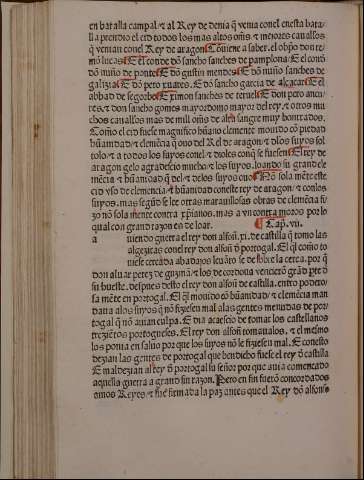 en batalla campal. ⁊ al Rey de denia q̃ venia conel enesta bata-
lla prendio el cid todos los mas altos oñs. ⁊ mejores caualłos
q̃ venian conel Rey de aragon Cõuiene a saber. el obpõ don re-
mõ lucas. E el con de dõ sancho sanches de pamplona. E el conõ
dõ nuño de pontes E dõ gustin mendos E dõ nuño sanches de
galizia E dõ pero xuares. E dõ sancho garcia de alcaçar E el
abbad de segorbe E ximon sanches de teruel E don pero
res. ⁊ don sancho gomes mayordomo mayor del rey. ⁊ otros mu-
chos caualłos mas de mill oñs de alta sangre muy honrados.
Como el cid fuese magnifico hũano clemente mouido cõ piedad
hũanidad ⁊ clemẽcia q̃ ouo del Rel de aragon ⁊ dlos suyos sol
tolo ⁊ a todos los suyos conel ⁊ dioles con q̃ se fuesen E el rey de
aragon gelo agradescio mucho ⁊ los suyos. loando su grande le
mẽcia ⁊ hũanidad q̃ del ⁊ delos suyos ouo Nõ sola mẽte este
cid vso de clemencia ⁊ hũanidad coneste rey de aragon ⁊ conlos
suyos. mas segũd se lee otras marauillosas obras de clemẽcia fi-
zo nõ sola mente contra xpianos. mas a vn contra moros por lo
qual con grand razon es de loar. Cap. vii.
a uiendo guerra el rey don alfon. xi. de castilla q̃ tomo las
algeziras conel rey don alfon đ portogal. El q̃l como to
uiese cercada abadajos leuãto se de sobre la cerca. por q̃
don aluar peres de guzmã ⁊ los de cordoua vencierõ grãd pte đ
su hueste. despues desto el rey don alfon de castilla. entro podero
sa mẽte en portogal. El q̃l mouido cõ hũanidad ⁊ clemẽcia man
daua alos suyos q̃ nõ fiziesen mal alas gentes menudas de por-
togal q̃ nõ auian culpa. E dia acaescio de tomar los castellanos
trezietos portogueses. El rey don alfon tomaualos. ⁊ el mesmo
los ponia en saluo por que los suyos nõ le fiziesen mal. E conesto
dezian las gentes de portogal que bendicho fuese el rey đ castilla
E maldezian al rey đ portogal su señor por que auia comencado
aquella guerra a grand sin razon. Pero en fin fuerõ concordados
amos Reyes ⁊ fue firmada la paz antes que el Rey dõ alfonso